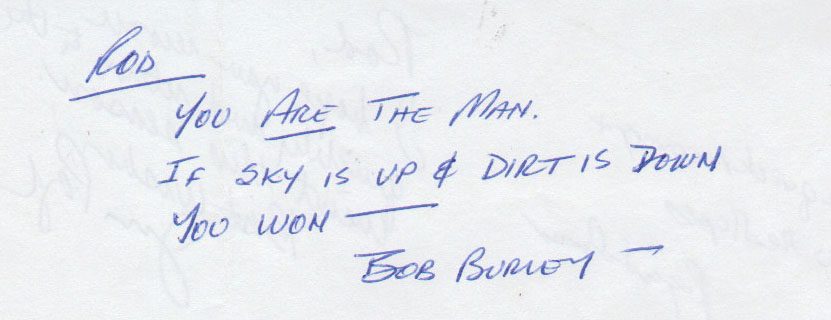 ROD
YOU ARE THE MAN.
IF SKY IS UP & DIRT IS DOWN
YOU WON —
BOB BURLEY —